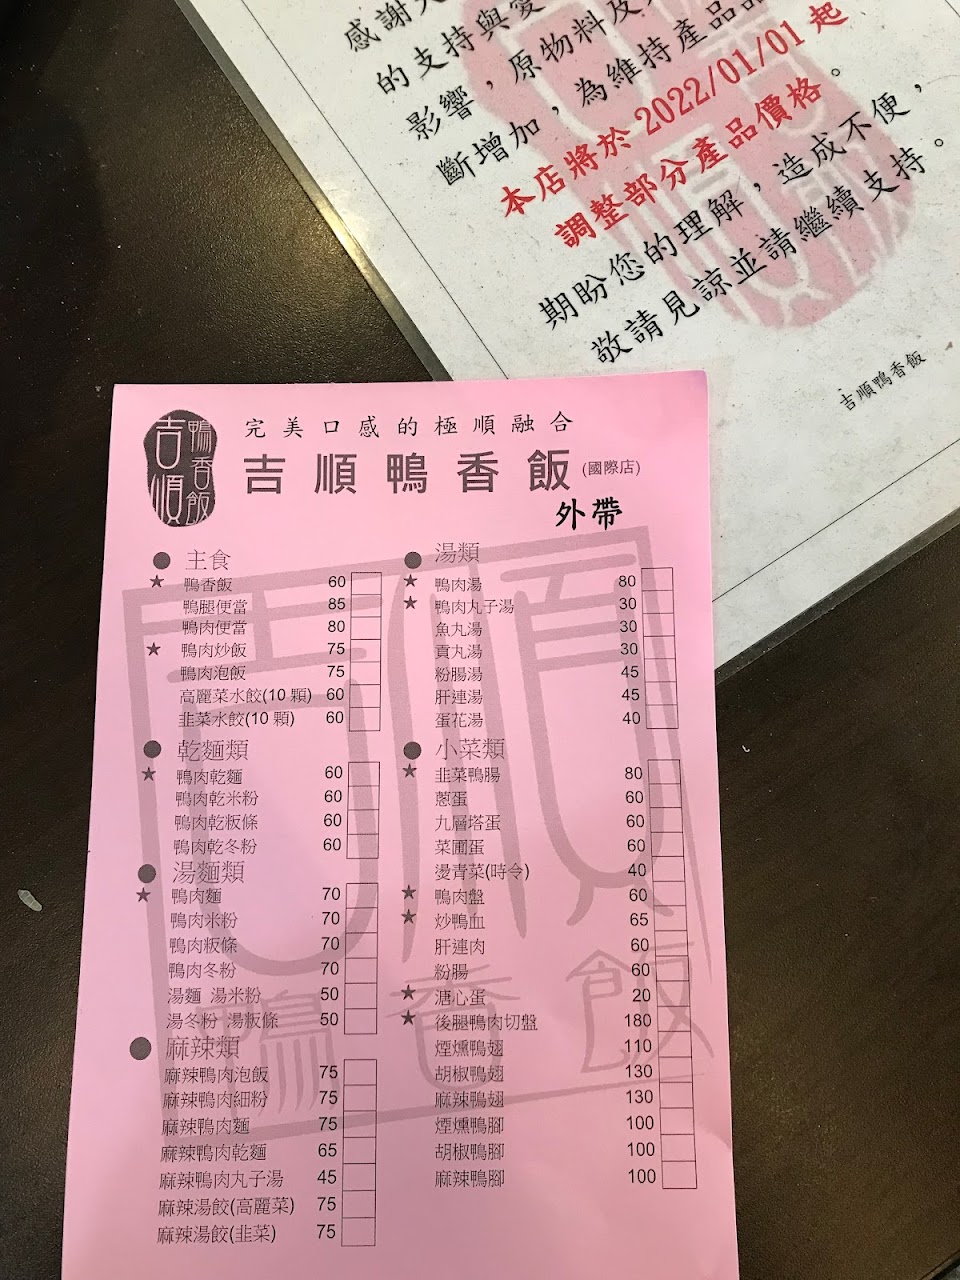 感謝
的支持與愛
影響，原物料及
斷增加，為維持產品品
本店將於 2022/01/01 起
調整部分產品價格。
期盼您的理解，造成不便，
敬請見諒並請繼續支持。
吉順鴨香飯
吉順
鴨香飯
完美口感的極順融合
吉順鴨香飯(國際店)
外帶
● 主食
★ 鴨香飯 60
鴨腿便當 85
鴨肉便當 80
★ 鴨肉炒飯 75
鴨肉泡飯 75
高麗菜水餃(10 顆) 60
韭菜水餃(10 顆) 60
● 乾麵類
★ 鴨肉乾麵 60
鴨肉乾米粉 60
鴨肉乾粄條 60
鴨肉乾冬粉 60
● 湯麵類
★ 鴨肉麵 70
鴨肉米粉 70
鴨肉粄條 70
鴨肉冬粉 70
湯麵 湯米粉 50
湯冬粉 湯粄條 50
● 麻辣類
麻辣鴨肉泡飯 75
麻辣鴨肉細粉 75
麻辣鴨肉麵 75
麻辣鴨肉乾麵 65
麻辣鴨肉丸子湯 45
麻辣湯餃(高麗菜) 75
麻辣湯餃(韭菜) 75
● 湯類
★ 鴨肉湯 80
★ 鴨肉丸子湯 30
魚丸湯 30
貢丸湯 30
粉腸湯 45
肝連湯 45
蛋花湯 40
● 小菜類
★ 韭菜鴨腸 80
蔥蛋 60
九層塔蛋 60
菜圃蛋 60
燙青菜(時令) 40
★ 鴨肉盤 60
★ 炒鴨血 65
肝連肉 60
粉腸 60
★ 溏心蛋 20
★ 後腿鴨肉切盤 180
煙燻鴨翅 110
胡椒鴨翅 130
麻辣鴨翅 130
煙燻鴨腳 100
胡椒鴨腳 100
麻辣鴨腳 100
吉順
鴨香飯